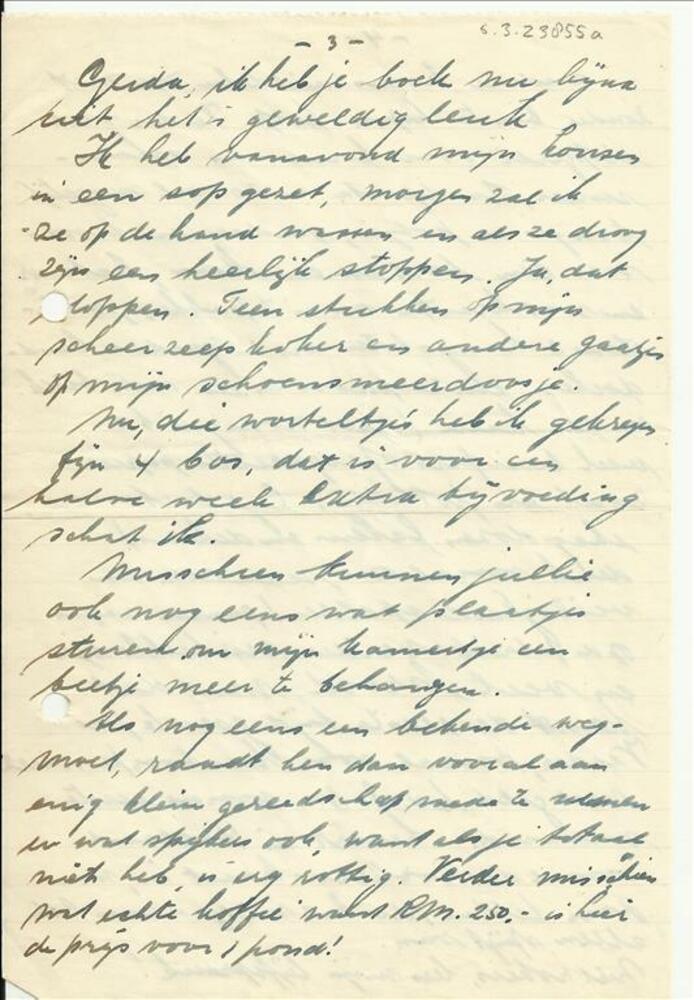 6.3.23855a
- 3 -
Gerda, ik heb je boek nu bijna
uit het is geweldig leuk
Ik heb vanavond mijn kousen
in een sop gezet, morgen zal ik
ze op de hand wassen en als ze droog
zijn een heerlijk stoppen. Ja, dat
stoppen. Teen stukken op mijn
scheerzeepkoker en andere gaatjes
op mijn schoensmeerdoosje.
Nu, die worteltjes heb ik gekregen
fijn 4 bos, dat is voor een
halve week extra bijvoeding
schat ik.
Misschien kunnen jullie
ook nog eens wat plaatjes
sturen om mijn kamertje een
beetje meer te behangen.
Als nog eens een bekende weg-
moet, raadt hen dan vooral aan
enig klein gereedschap mede te nemen
en wat spijkers ook, want als je totaal
niets heb, is erg rottig. Verder misschien
wat echte koffie want RM. 250,- is hier
de prijs voor 1 pond!